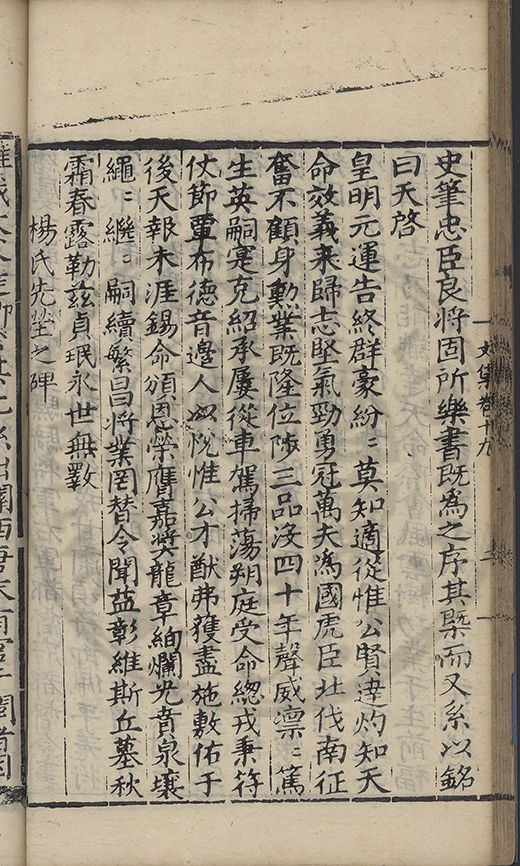 文集卷十九
史筆忠臣良將固所樂書既為之序其槩而又系以銘
曰天啓
皇明元運告終群豪紛〻莫知適從惟公賢達灼知天
命效義来歸志堅氣勁勇冠萬夫為國虎臣北伐南征
奮不顧身勳業既隆位陟三品沒四十年聲威凛〻篤
生英嗣寔克紹承屢從車駕掃蕩朔庭受命總戎秉符
仗節覃布德音邊人㕥悅惟公才猷弗獲盡施敷佑于
後天報未涯錫命頒恩榮膺嘉奬龍章絢爛光賁泉壤
繩〻繼〻嗣續繁昌將業罔替令聞益彰維斯丘墓秋
霜春露勒兹貞珉永世無斁
楊氏先塋之碑